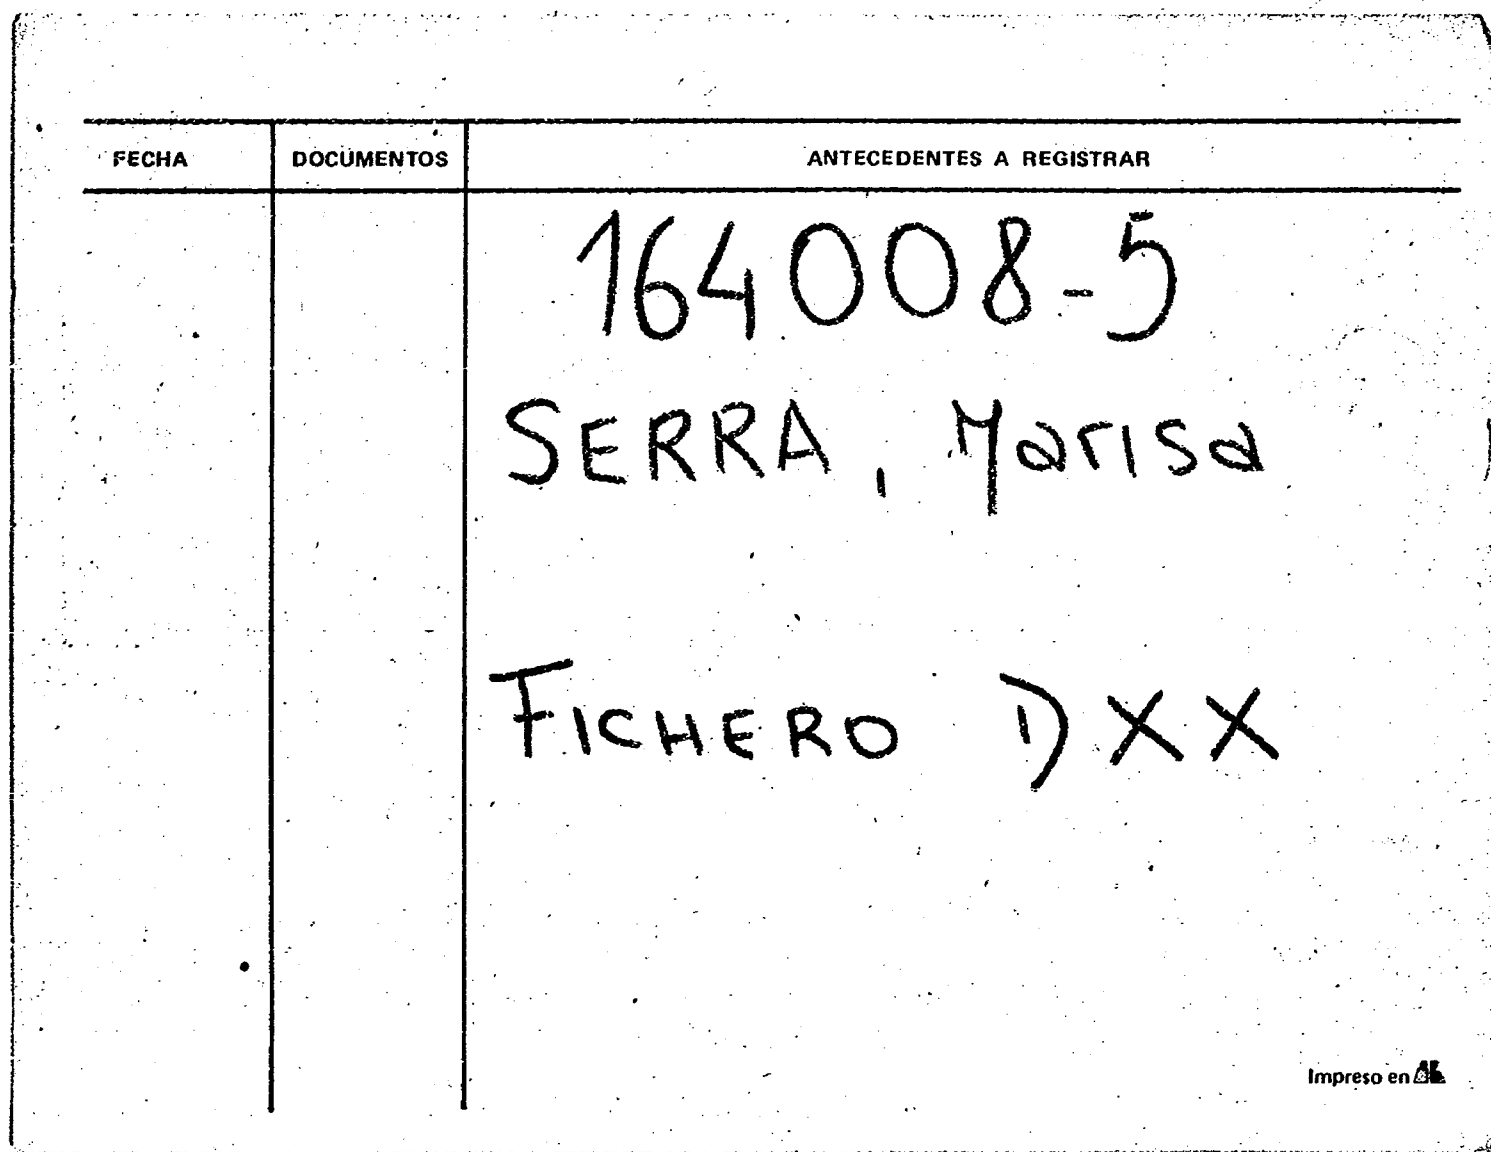 FECHA DOCUMENTOS ANTECEDENTES A REGISTRAR
164008-5
SERRA, Marisa
FICHERO DXX
Impreso en